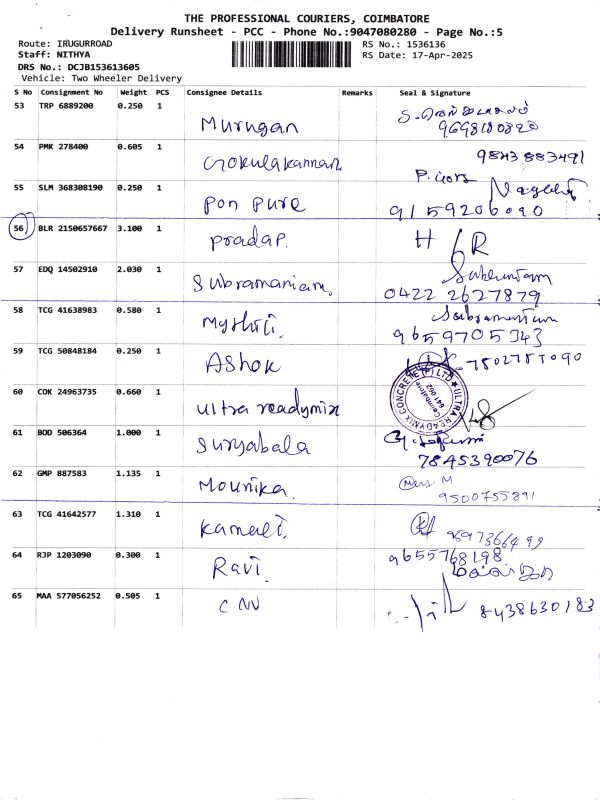 THE PROFESSIONAL COURIERS, COIMBATORE
Delivery Runsheet - PCC - Phone No.:9047080280 - Page No.:5
Route: IRUGURROAD
Staff: NITHYA
DRS No.: DCJB153613605
Vehicle: Two Wheeler Delivery
RS No.: 1536136
RS Date: 17-Apr-2025
S No Consignment No Weight PCS Consignee Details Remarks Seal & Signature
53 TRP 6889200 0.250 1 Murugan
54 PMK 278400 0.605 1 Gokulakannan 9843883491
55 SLM 368308190 0.250 1 Pon pure 9159206090
56 BLR 2150657667 3.100 1 pradap.
57 EDQ 14502910 2.030 1 Subramaniam. 0422 2627879
58 TCG 41638983 0.580 1 Mythili. 9659705343
59 TCG 50848184 0.250 1 Ashok
60 COK 24963735 0.660 1 ultra readymix ULTRA READYMIX CONCRETE (P) LTD Coimbatore 641 062
61 BOD 506364 1.000 1 Suryabala 7845390076
62 GMP 887583 1.135 1 Mounika. 9500755891
63 TCG 41642577 1.310 1 Kamali.
64 RJP 1203090 0.300 1 Ravi 9655768198
65 MAA 577056252 0.505 1 CNN 8438630183